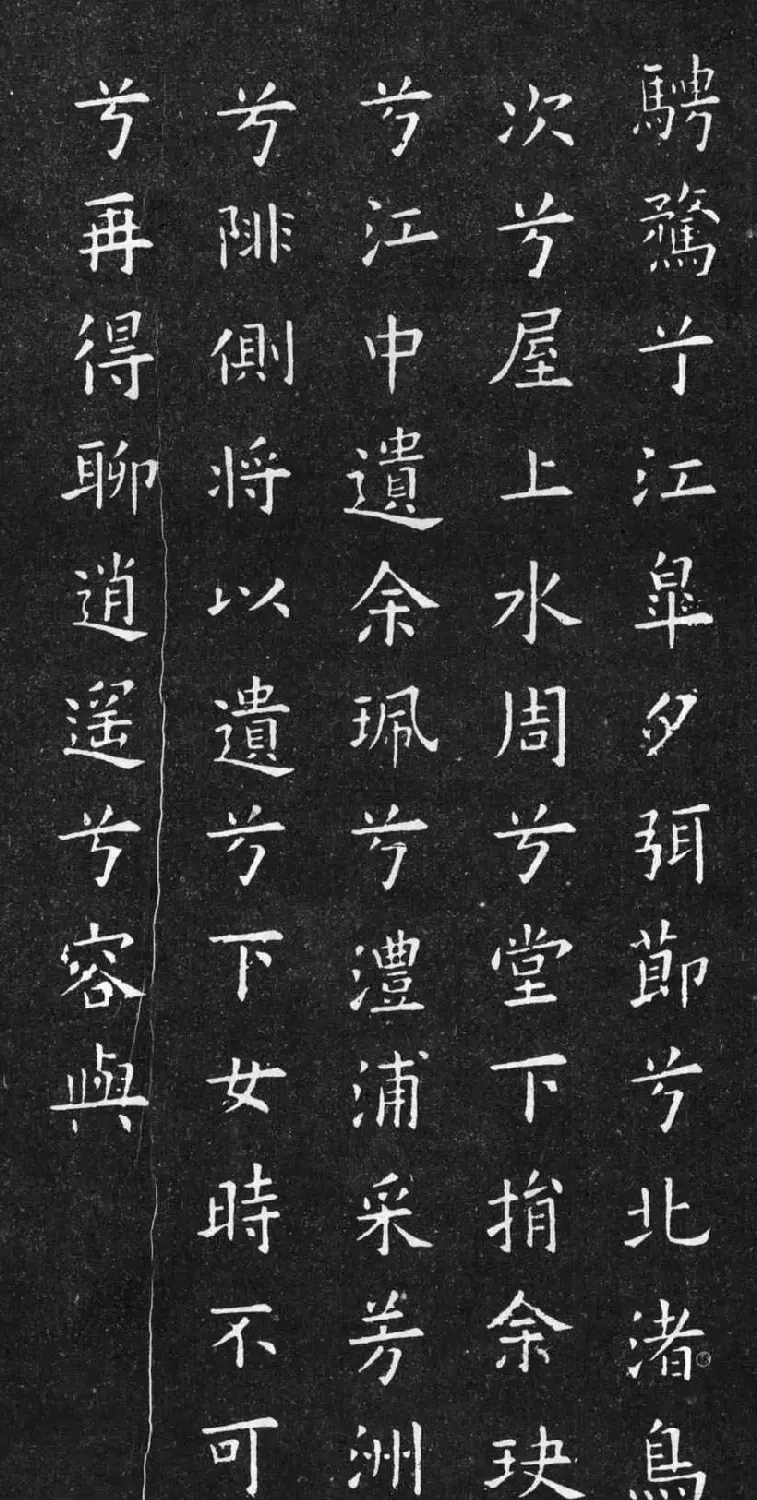 騁騖兮江皋夕弭節兮北渚鳥
次兮屋上水周兮堂下捐余玦
兮江中遺余珮兮澧浦采芳洲
兮陫側將以遺兮下女時不可
兮再得聊逍遙兮容與